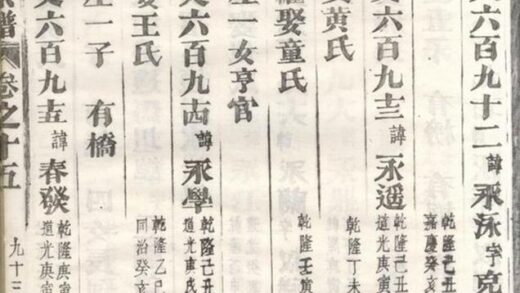 六百九十二 諱永泳字克
乾隆己丑
嘉慶癸亥
六百九十三 諱永遥
乾隆己丑
道光庚
黄氏
乾隆丁未
娶童氏
乾隆壬寅
一女亨官
六百九十四 諱永學
乾隆己丑
道光庚戌
王氏
乾隆乙巳
同治癸亥
一子 有橋
六百九十五 諱春發
乾隆庚寅
道光庚寅
譜 卷之十五 九十三